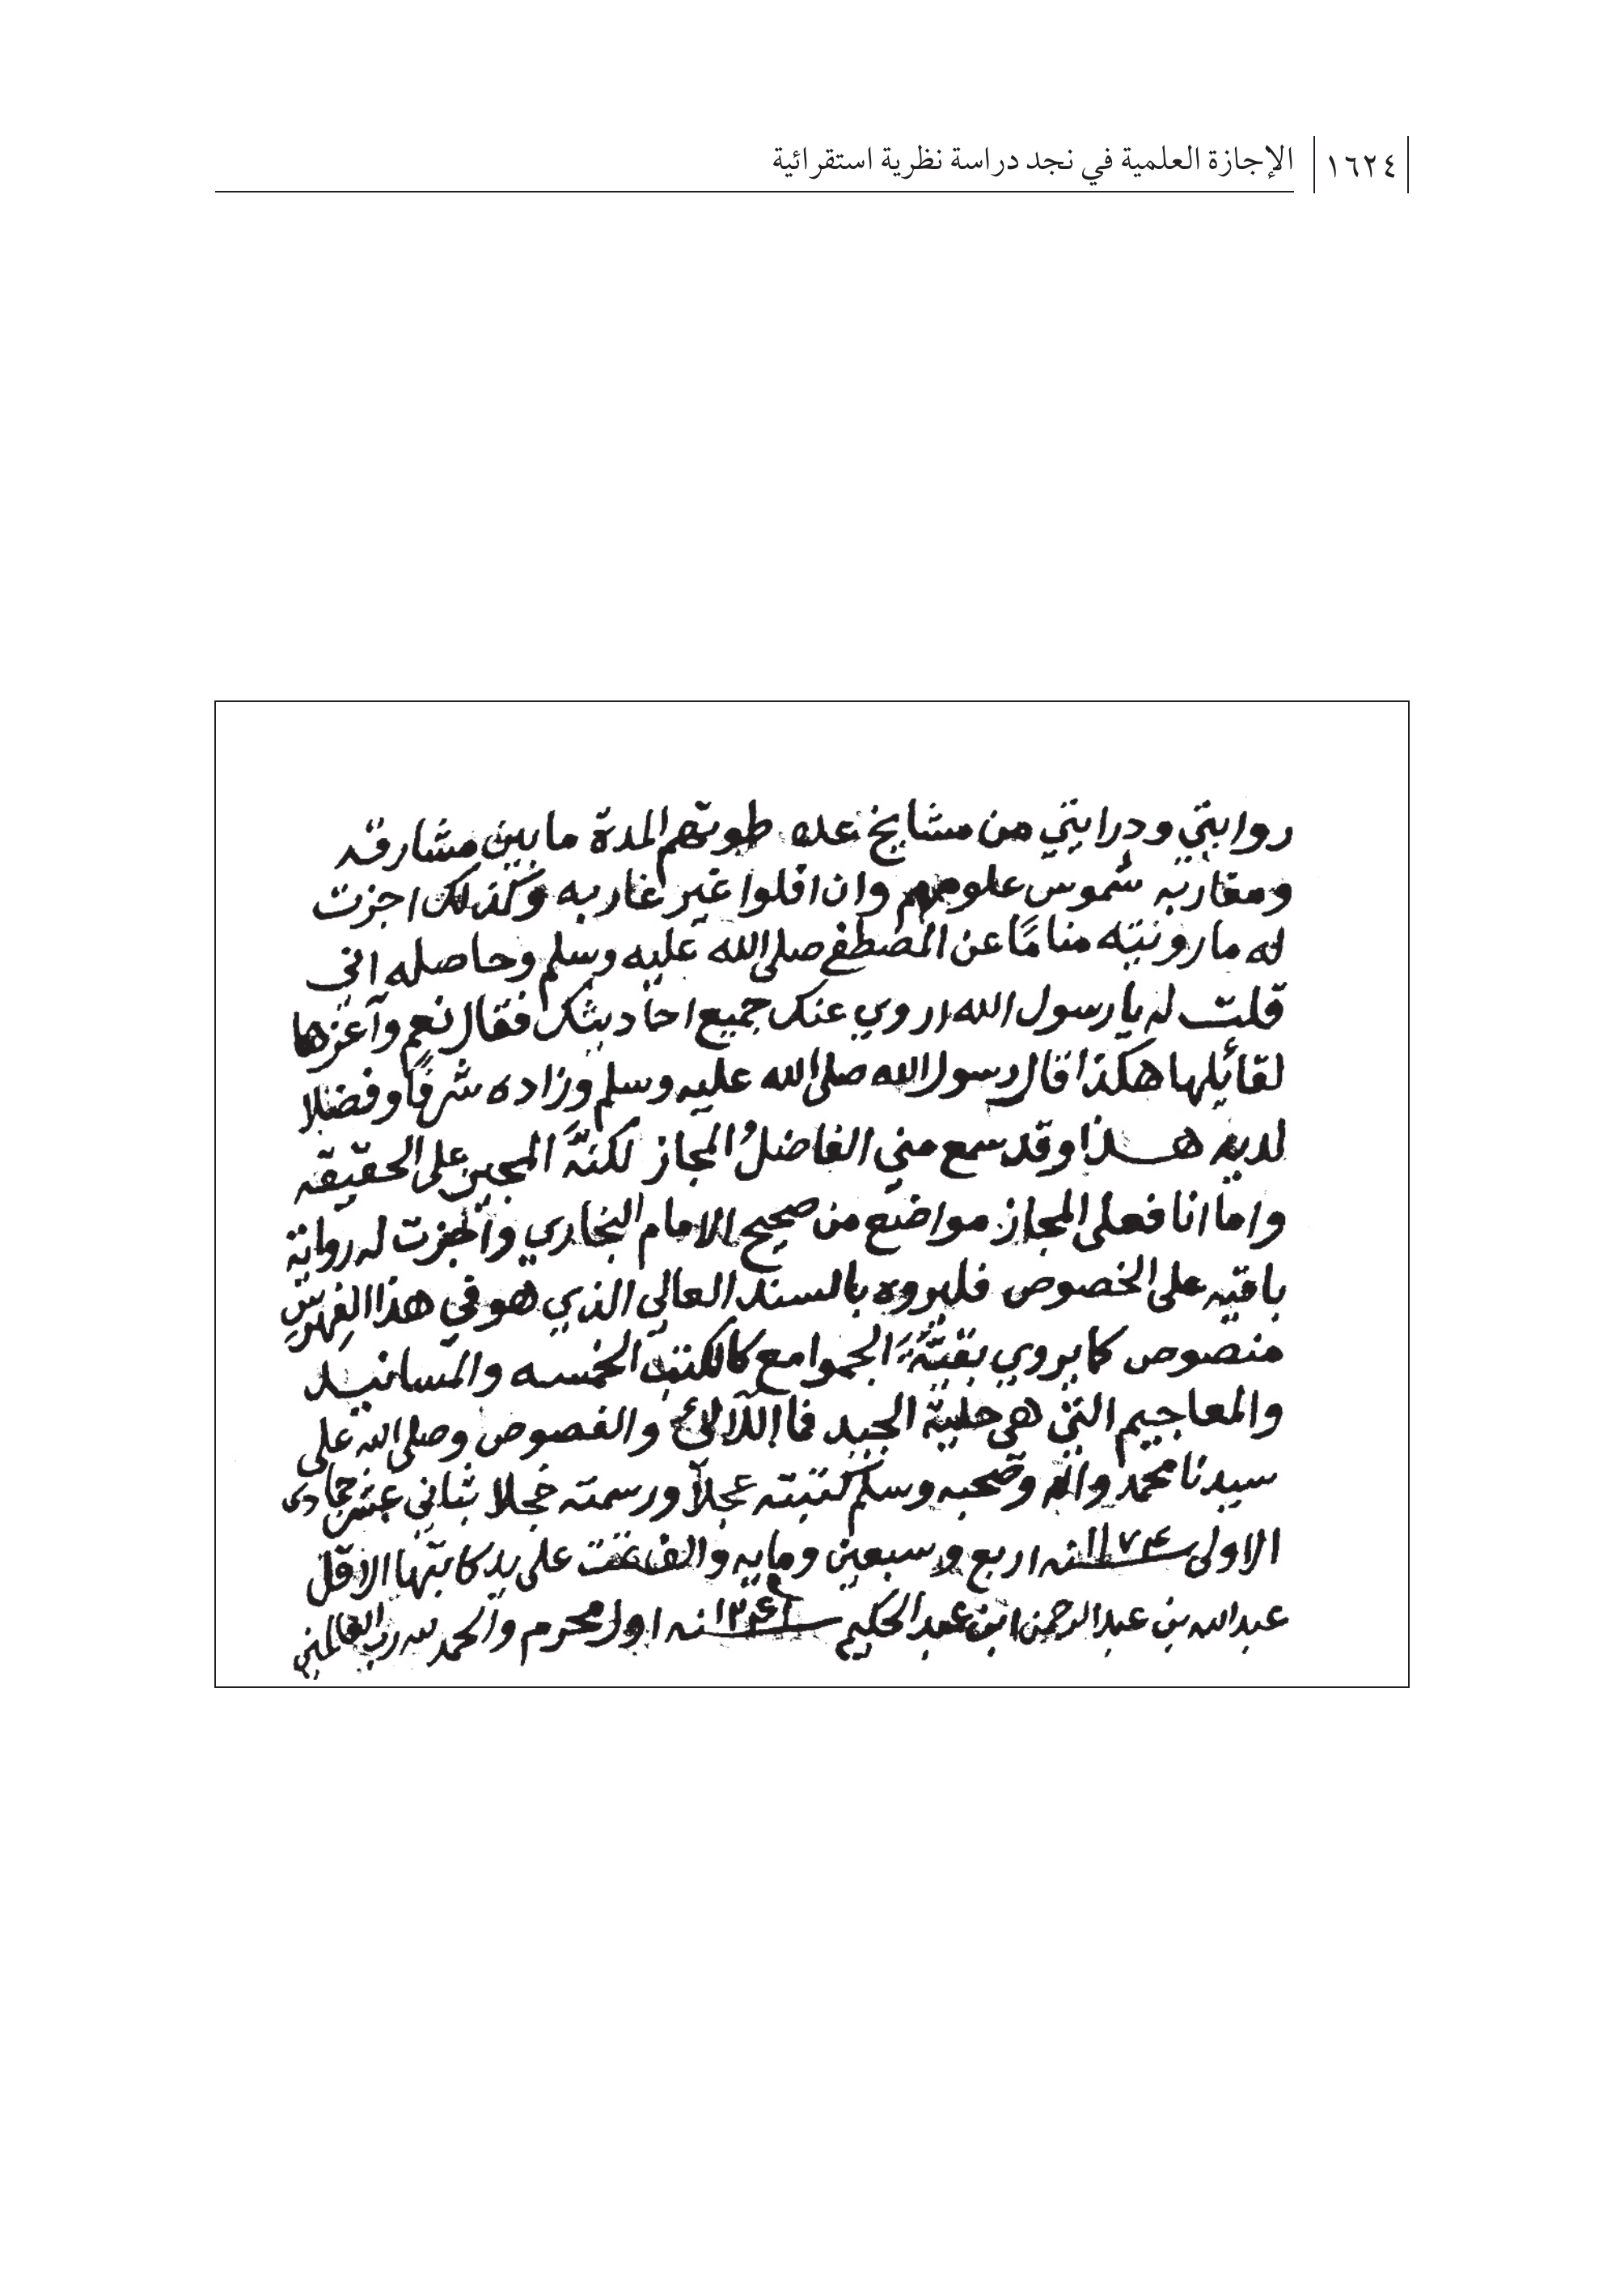 ١٦٢٤ الإجازة العلمية في نجد دراسة نظرية استقرائية
روايتي ودرايتي من مشايخ عده طوتهم المدة ما بين مشارقه
ومغاربه شموس علومهم وان افلوا غير غاربه وكذلك اجزت
له ما رويته مناما عن المصطفى صلى الله عليه وسلم وحاصله اني
قلت له يا رسول الله اروي عنك جميع احاديثك فقال نعم وآعزها
لقائلها هكذا قال رسول الله صلى الله عليه وسلم وزاده شرفًا وفضلا
لديه هـذا وقد سمع مني الفاضلُ المجاز لكنَّه المجيز على الحقيقه
واما انا فعلى المجاز مواضع من صحيح الامام البخاري واجزت له رواية
باقيه على الخصوص فليروه بالسند العالي الذي هو في هذا الفهرس
منصوص كما يروي بقيَّةَ الجوامع كالكتب الخمسه والمسانيـد
والمعاجيم التي هي حلية الجيد فما اللآلئ والفصوص وصلى الله على
سيدنا محمد واله وصحبه وسلم كتبته عجلاً ورسمته خجلا ثاني عشر جمادى
الاولى سـ١١٧٤ـنه اربع وسبعين ومايه والف تمت على يد كاتبها الاقل
عبد الله بن عبد الرحمن ابن عبد الحكيم سـنه اول محرم والحمد لله رب العالمين